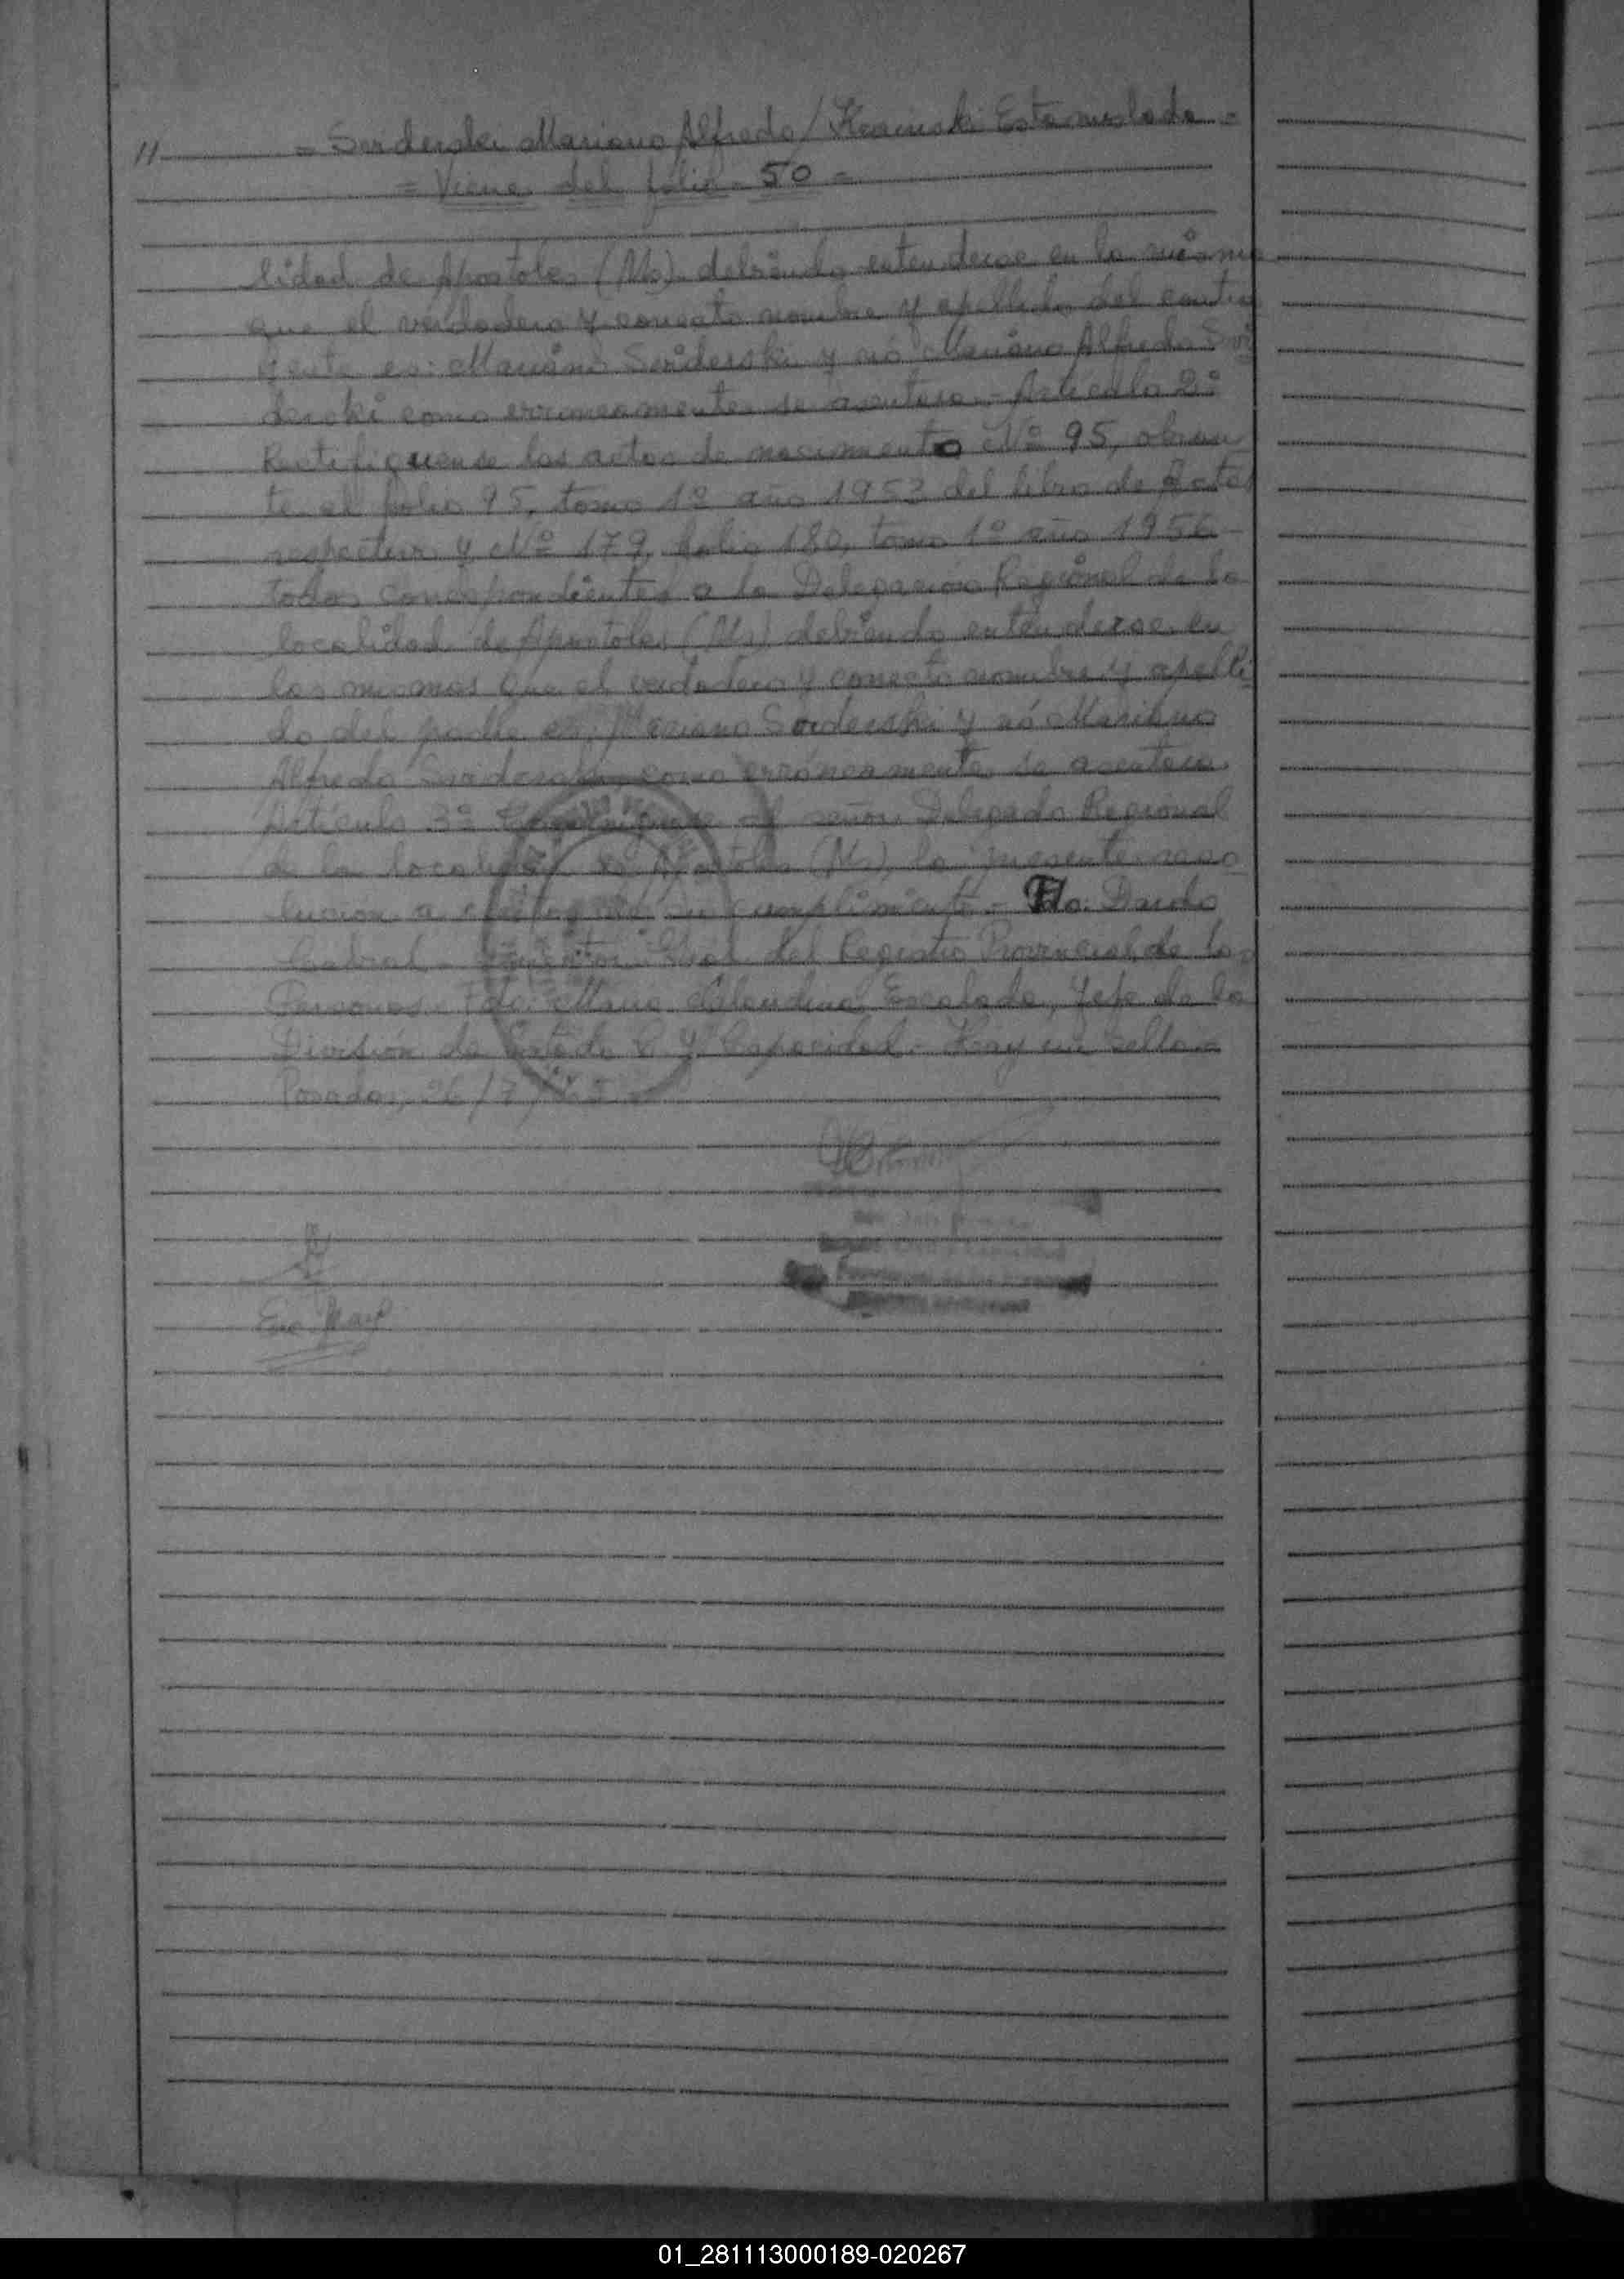 11 = Swiderski Mariano Alfredo / Estanislada =
= Viene del folio - 50 =
lidad de Apostoles (Ms) debiendo entenderse en la misma
que el verdadero y correcto nombre y apellido del contra
yente es: Mariano Swiderski y nó Mariano Alfredo Swi
derski como erroneamente se asentara - Artículo 2º
Rectifiquense las actas de nacimiento Nº 95, obran
te al folio 95, tomo 1º año 1953 del libro de Actas
respectivo y Nº 179, folio 180, tomo 1º año 1956
todas correspondientes a la Delegación Regional de la
localidad de Apostoles (Ms) debiendo entenderse en
las mismas que el verdadero y correcto nombre y apelli
do del padre es: Mariano Swiderski y nó Mariano
Alfredo Swiderski, como erróneamente se asentara.
Artículo 3º al señor Delegado Regional
de la localidad de Apostoles (Ms), la presente reso
lucion a efectos de su cumplimiento - Fdo. Dardo
Cabral - Director Gral del Registro Provincial de las
Personas - Fdo: Escalada, Jefe de la
División de Estado C. y Capacidad - Hay un sello =
Posadas, 26/7/
01_281113000189-020267